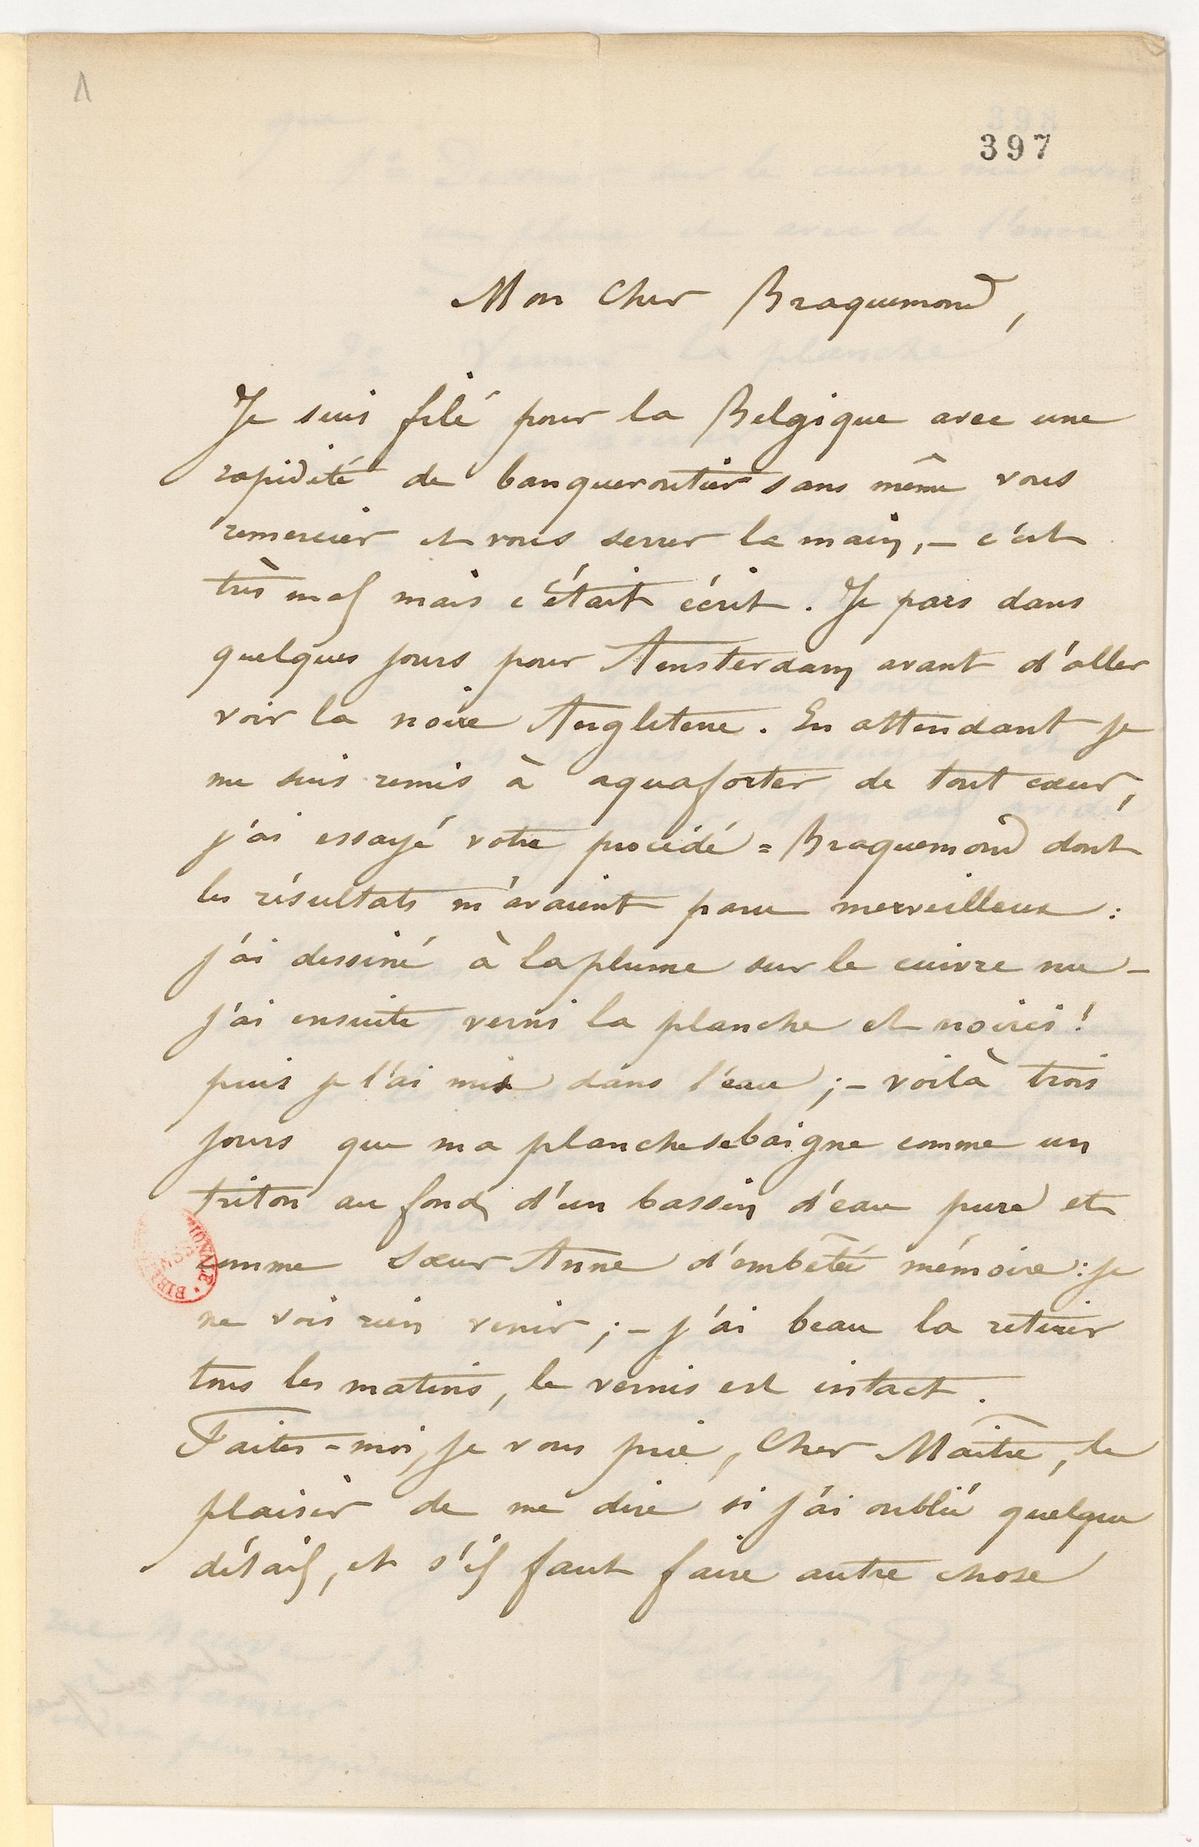 397
Mon Cher Braquemond,
Je suis filé pour la Belgique avec une
rapidité de banqueroutier sans même vous
remercier et vous serrer la main, – c'est
très mal mais c'était écrit. Je pars dans
quelques jours pour Amsterdam avant d'aller
voir la noire Angleterre. En attendant je
me suis remis à aquaforter de tout cœur,
j'ai essayé votre procédé = Braquemond dont
les résultats m'avaient paru merveilleux :
j'ai dessiné à la plume sur le cuivre nu –
j'ai ensuite verni la planche et noirci !
puis je l'ai mis dans l'eau ; – voilà trois
jours que ma planche se baigne comme un
triton au fond d'un bassin d'eau pure et
comme sœur Anne d'embêtée mémoire : je
ne vois rien venir ; – j'ai beau la retirer
tous les matins, le vernis est intact.
Faites-moi, je vous prie, Cher Maître, le
plaisir de me dire si j'ai oublié quelque
détail, et s'il faut faire autre chose